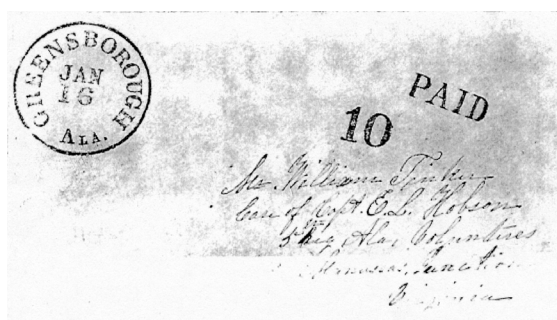 GREENSBOROUGH
JAN
16
ALA.
PAID
10
Mr. William Tinker
Care of Capt. E. L. Hobson
5th Reg Ala, Voluntires
Manassas, Junction
Virginia